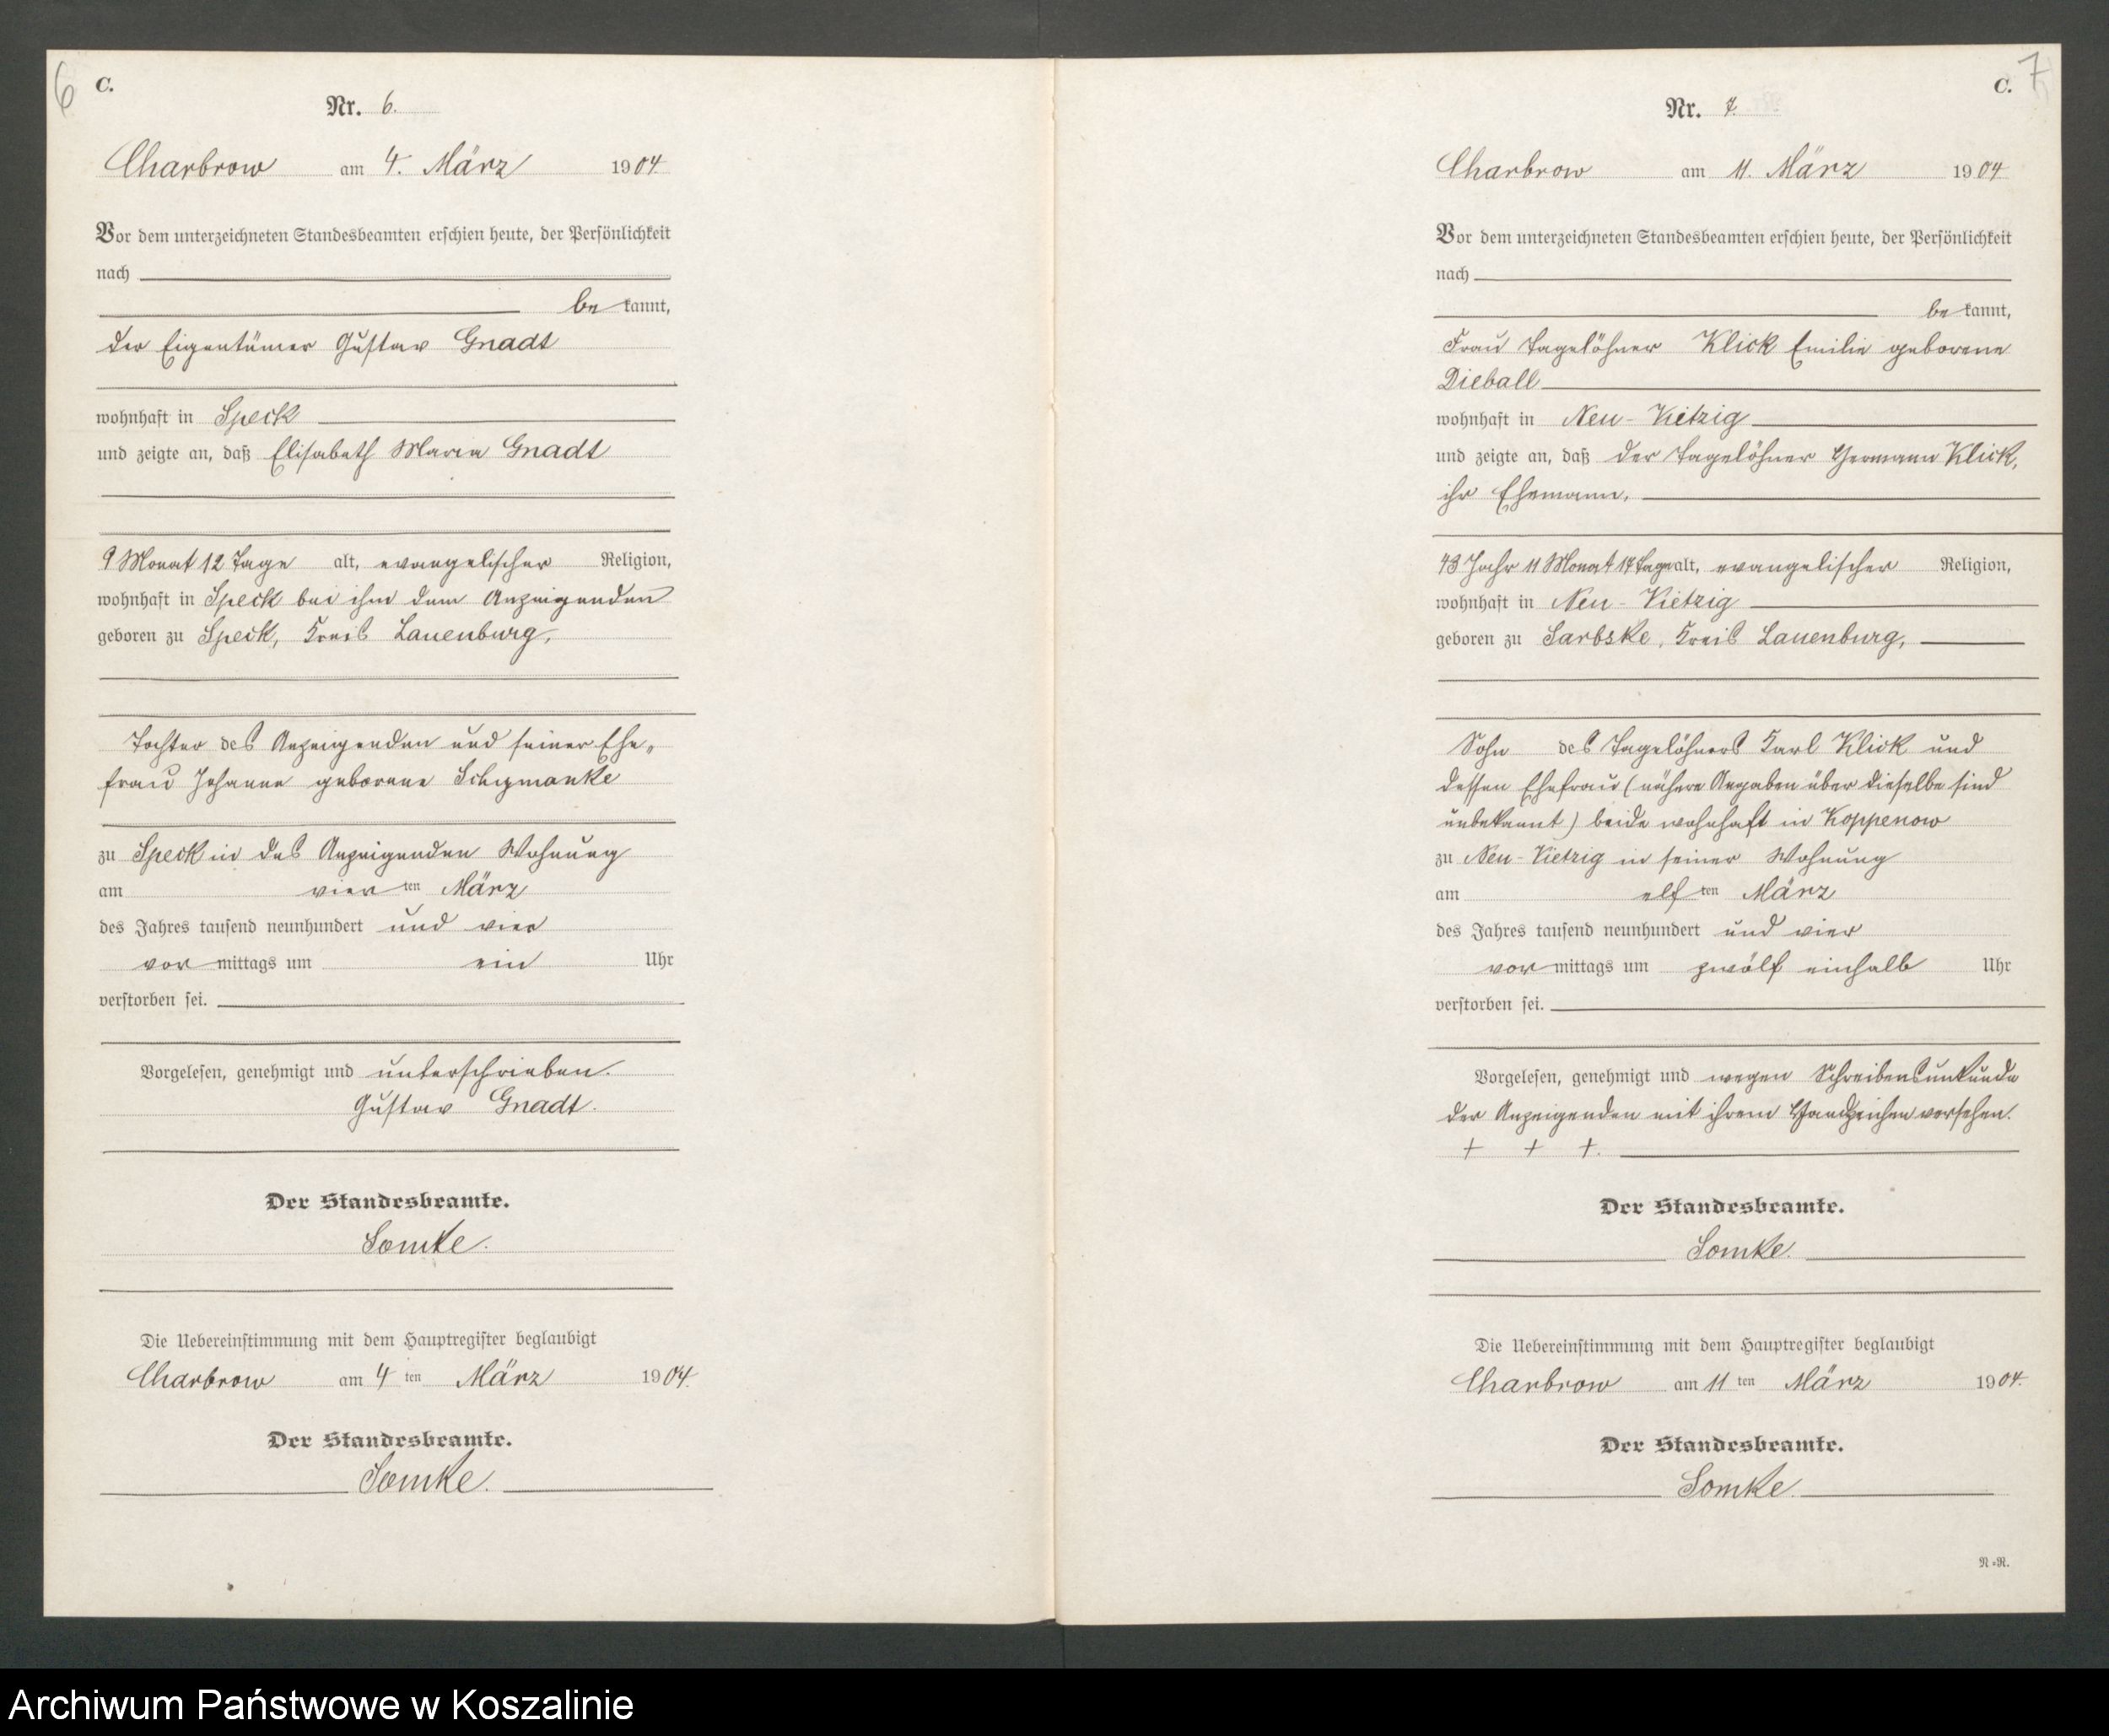 6
C.
Nr. 6.
Charbrow am 4. März 1904
Vor dem unterzeichneten Standesbeamten erschien heute, der Persönlichkeit
nach
be kannt,
der Eigentümer Gustav Gnadt
wohnhaft in Speck
und zeigte an, daß Elisabeth Maria Gnadt
9 Monat 12 Tage alt, evangelischer Religion,
wohnhaft in Speck bei ihm dem Anzeigenden
geboren zu Speck, Kreis Lauenburg,
Tochter des Anzeigenden und seiner Ehe„
frau Johanne geborene Schymanke
zu Speck in des Anzeigenden Wohnung
am vier ten März
des Jahres tausend neunhundert und vier
vor mittags um ein Uhr
verstorben sei.
Vorgelesen, genehmigt und unterschrieben.
Gustav Gnadt.
Der Standesbeamte.
Lomke.
Die Uebereinstimmung mit dem Hauptregister beglaubigt
Charbrow am 4 ten März 1904.
Der Standesbeamte.
Lomke.
7
C.
Nr. 7.
Charbrow am 11. März 1904
Vor dem unterzeichneten Standesbeamten erschien heute, der Persönlichkeit
nach
be kannt,
Frau Tagelöhner Klick Emilie geborene
Dieball
wohnhaft in Neu-Vietzig
und zeigte an, daß der Tagelöhner Hermann Klick,
ihr Ehemann,
43 Jahr 11 Monat 14 Tage alt, evangelischer Religion,
wohnhaft in Neu-Vietzig
geboren zu Sarbske, Kreis Lauenburg,
Sohn des Tagelöhners Karl Klick und
dessen Ehefrau (nähere Angaben über dieselbe sind
unbekannt) beide wohnhaft in Koppenow
zu Neu-Vietzig in seiner Wohnung
am elf ten März
des Jahres tausend neunhundert und vier
vor mittags um zwölf einhalb Uhr
verstorben sei.
Vorgelesen, genehmigt und wegen Schreibensunkunde
der Anzeigenden mit ihrem Handzeichen versehen.
+ + +.
Der Standesbeamte.
Lomke.
Die Uebereinstimmung mit dem Hauptregister beglaubigt
Charbrow am 11 ten März 1904.
Der Standesbeamte.
Lomke.
N=N.
Archiwum Państwowe w Koszalinie